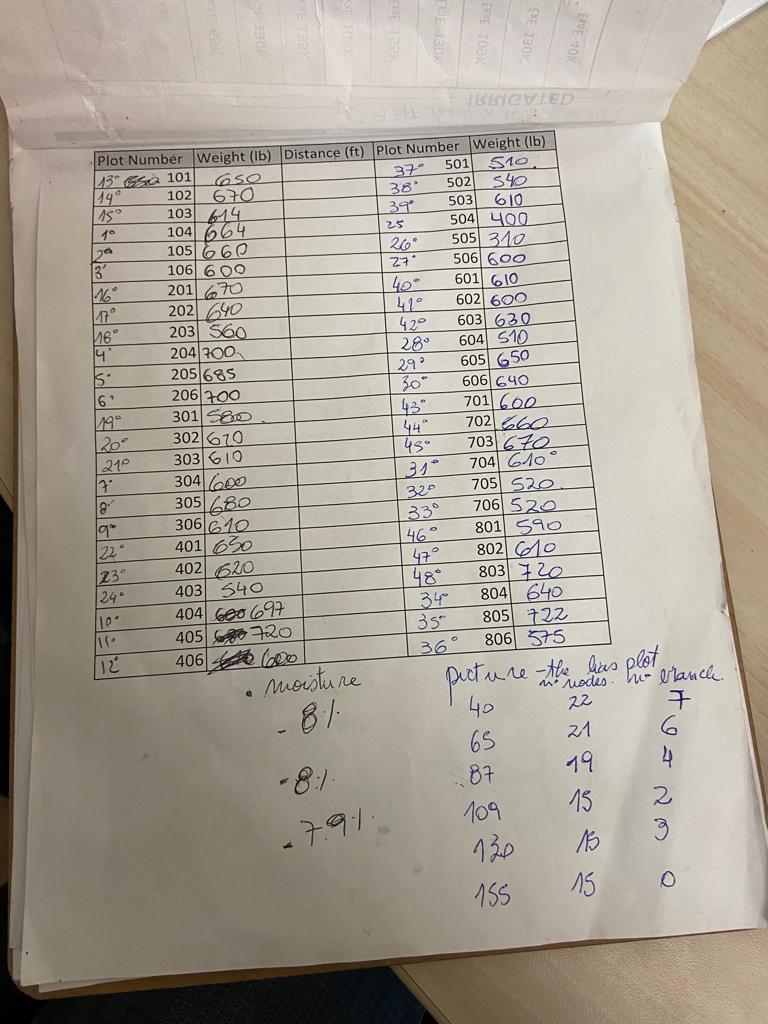 IRRIGATED
Plot Number Weight (lb) Distance (ft) Plot Number Weight (lb)
13° 101 650 37° 501 510
14° 102 670 38° 502 540
15° 103 614 39° 503 610
1° 104 664 25 504 400
2° 105 660 26° 505 310
3° 106 600 27° 506 600
16° 201 670 40° 601 610
17° 202 640 41° 602 600
18° 203 560 42° 603 630
4° 204 700 28° 604 510
5° 205 685 29° 605 650
6° 206 700 30° 606 640
19° 301 580 43° 701 600
20° 302 670 44° 702 660
21° 303 610 45° 703 670
7° 304 600 31° 704 610°
8° 305 680 32° 705 520
9° 306 610 33° 706 520
22° 401 630 46° 801 590
23° 402 620 47° 802 610
24° 403 540 48° 803 720
10° 404 697 34° 804 640
11° 405 720 35° 805 722
12° 406 600 36° 806 575
• moisture picture - the has plot
n° nodes. n° branch.
- 8% 40 22 7
65 21 6
- 8% 87 19 4
- 7.9% 109 15 2
130 15 3
155 15 0